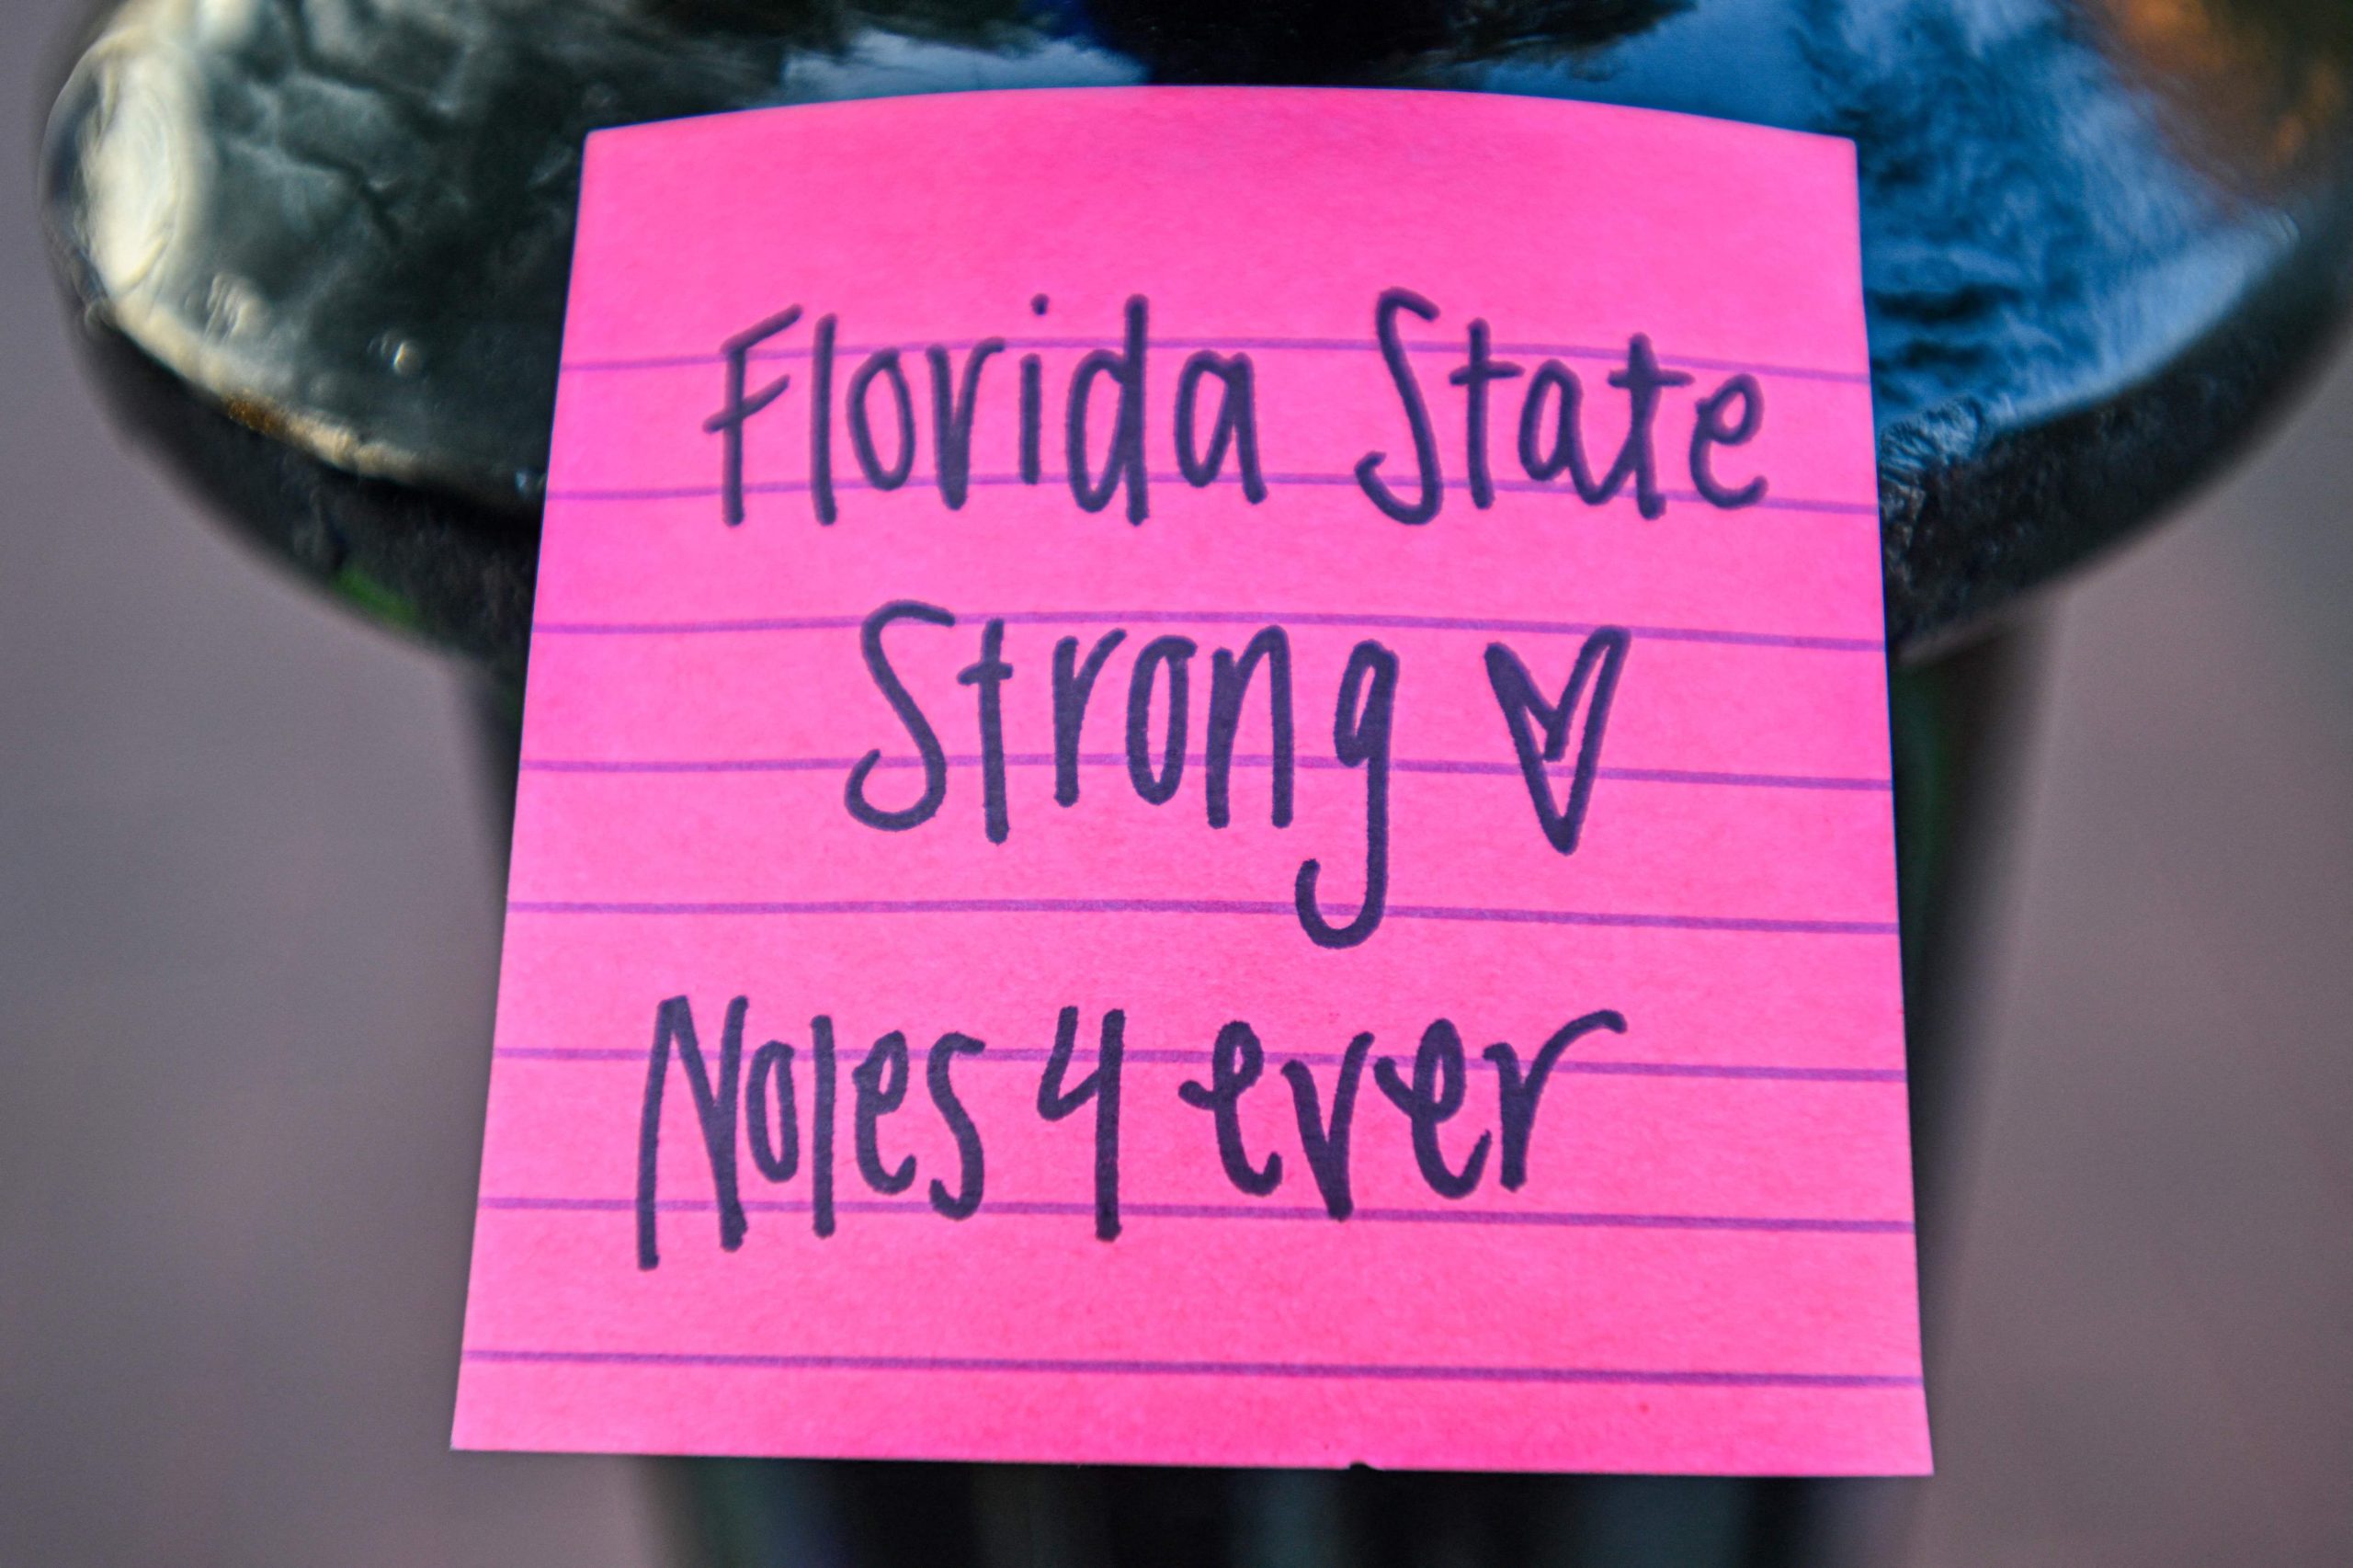 Florida State
Strong ♡
Noles 4 ever